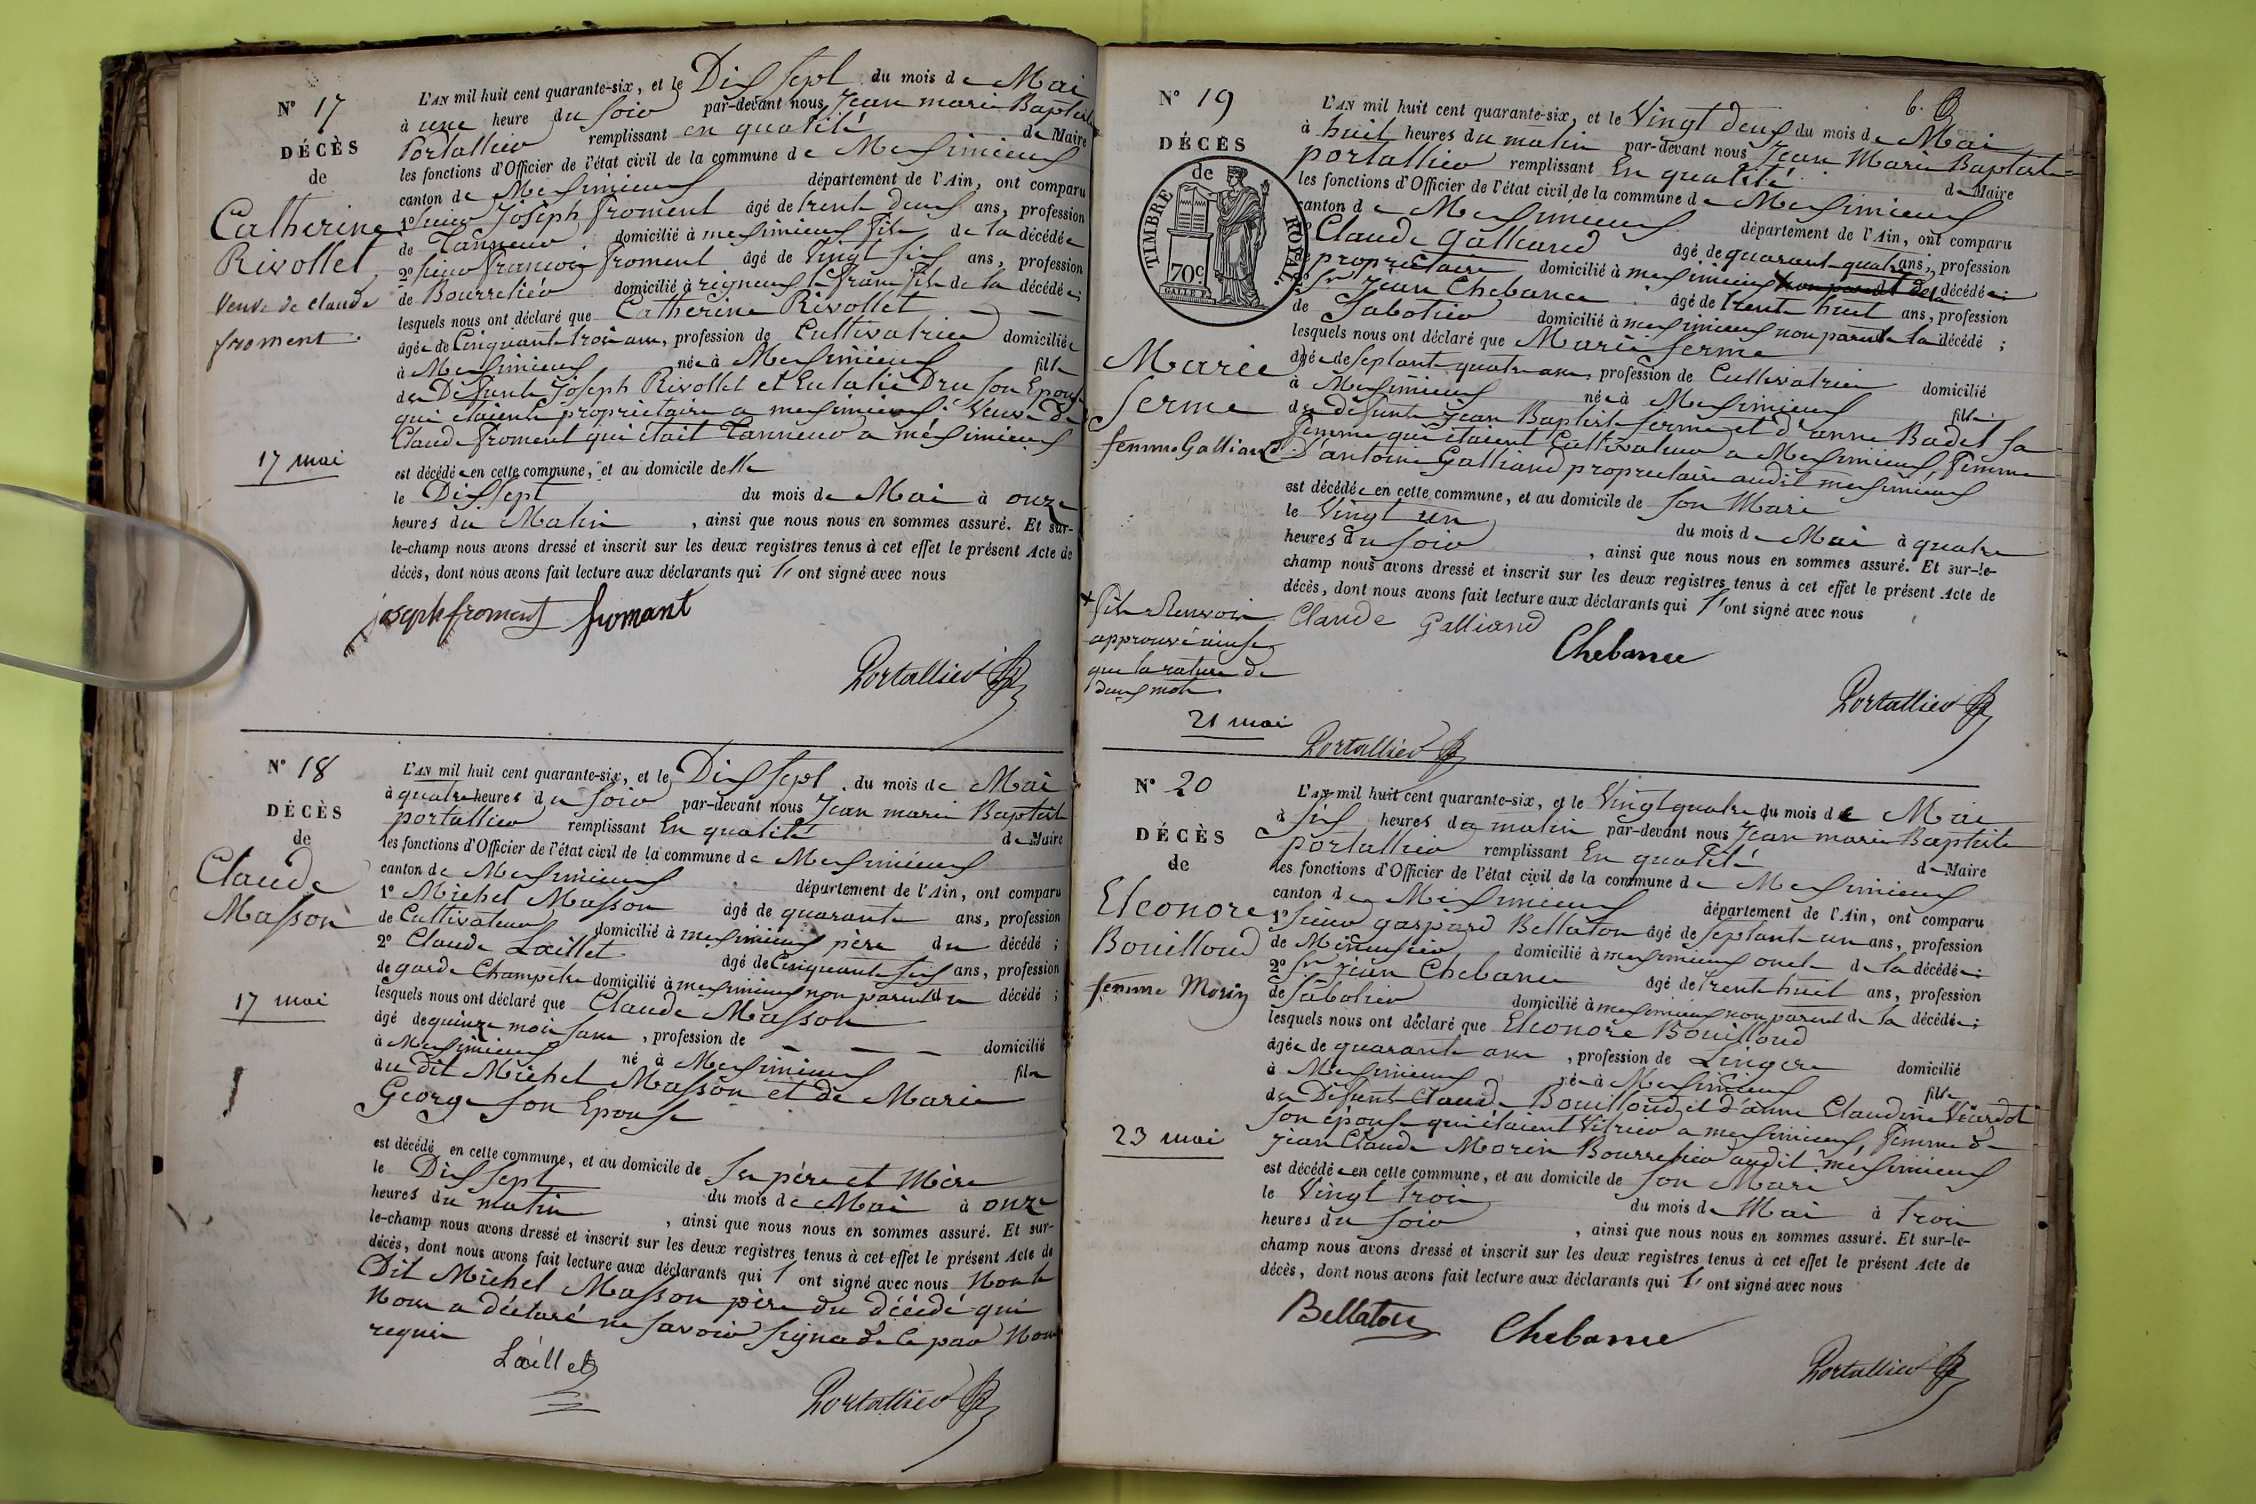 N° 17
DÉCÈS
de
Catherine
Rivollet
veuve de Claude
froment
17 mai
L'AN mil huit cent quarante-six, et le Dix Sept du mois de Mai
à une heure du Soir par-devant nous Jean marie Baptiste
Portallier remplissant en qualité de Maire
les fonctions d'Officier de l'état civil de la commune de Meximieux
canton de Meximieux département de l'Ain, ont comparu
1° sieur Joseph froment âgé de trente deux ans, profession
de Tanneur domicilié à meximieux fils de la décédée
2° sieur francois froment âgé de Vingt six ans, profession
de Bourrelier domicilié à rigneux le franc fils de la décédée;
lesquels nous ont déclaré que Catherine Rivollet
âgée de Cinquante trois ans, profession de Cultivatrice domiciliée
à Meximieux née à Meximieux fille
des Défunts Joseph Rivollet et Eulalie Dru son Epouse
qui etaient propriétaire a meximieux. Veuve de
Claude froment qui était Tanneur a méximieux
est décédée en cette commune, et au domicile delle
le Dix Sept du mois de Mai à onze
heures du Matin, ainsi que nous nous en sommes assuré. Et sur-
le-champ nous avons dressé et inscrit sur les deux registres tenus à cet effet le présent Acte de
décès, dont nous avons fait lecture aux déclarants qui l'ont signé avec nous
joseph froment fromant
Portallier
N° 18
DÉCÈS
de
Claude
Masson
17 mai
L'AN mil huit cent quarante-six, et le Dix Sept du mois de Mai
à quatre heures du Soir par-devant nous Jean marie Baptiste
portallier remplissant En qualité de Maire
les fonctions d'Officier de l'état civil de la commune de Meximieux
canton de Meximieux département de l'Ain, ont comparu
1° Michel Masson âgé de quarante ans, profession
de Cultivateur domicilié à meximieux père du décédé;
2° Claude Laillet âgé de Cinquante six ans, profession
de garde Champêtre domicilié à meximieux non parent du décédé;
lesquels nous ont déclaré que Claude Masson
âgé de quinze mois sans, profession de domicilié
à Meximieux né à Meximieux fils
du dit Michel Masson et de Marie
George son Epouse
est décédé en cette commune, et au domicile de ses père et Mère
le Dix Sept du mois de Mai à onze
heures du matin, ainsi que nous nous en sommes assuré. Et sur-
le-champ nous avons dressé et inscrit sur les deux registres tenus à cet effet le présent Acte de
décès, dont nous avons fait lecture aux déclarants qui l'ont signé avec nous Non le
Dit Michel Masson père du décédé qui
Nous a déclaré ne savoir signer de ce par Nous
requis
Laillet
Portallier
6.
N° 19
DÉCÈS
de
TIMBRE ROYAL.
70c
Marie
ferme
femme Galliand
L'AN mil huit cent quarante-six, et le Vingt deux du mois de Mai
à huit heures du matin par-devant nous Jean Marie Baptiste
portallier remplissant En qualité de Maire
les fonctions d'Officier de l'état civil de la commune de Meximieux
canton de Meximieux département de l'Ain, ont comparu
1° Claude Galliand âgé de quarante quatre ans, profession
de propriétaire domicilié à meximieux non parent de la décédée;
2° Sr Jean Chebance âgé de trente huit ans, profession
de Sabotier domicilié à meximieux non parent de la décédé;
lesquels nous ont déclaré que Marie ferme
âgée de Septante quatre ans, profession de Cultivatrice domicilié
à Meximieux née à Meximieux fille
des défunts Jean Baptiste ferme et d'anne Badet Sa
femme qui étaient Cultivateur a Meximieux, femme
d'antoine Galliand proprietaire audit meximieux
est décédée en cette commune, et au domicile de Son Mari
le Vingt un du mois de Mai à quatre
heures du Soir, ainsi que nous nous en sommes assuré. Et sur-le-
champ nous avons dressé et inscrit sur les deux registres tenus à cet effet le présent Acte de
décès, dont nous avons fait lecture aux déclarants qui l'ont signé avec nous
+ fils Renvoi
approuvé ainsi
que la rature de
deux mots
21 mai
Claude Galliand
Chebance
Portallier
Portallier
N° 20
DÉCÈS
de
Eleonore
Bouilloud
femme Morin
23 mai
L'AN mil huit cent quarante-six, et le Vingt quatre du mois de Mai
à six heures du matin par-devant nous Jean marie Baptiste
portallier remplissant En qualité de Maire
les fonctions d'Officier de l'état civil de la commune de Meximieux
canton de Meximieux département de l'Ain, ont comparu
1° sieur gaspard Bellaton âgé de Septante un ans, profession
de Menuisier domicilié à meximieux oncle de la décédée;
2° Sr jean Chebance âgé de trente huit ans, profession
de Sabotier domicilié à meximieux non parent de la décédée;
lesquels nous ont déclaré que Eleonore Bouilloud
âgée de quarante ans, profession de Lingère domicilié
à Meximieux née à Meximieux fille
des Défunt Claude Bouilloud et d'anne Claudine
son épouse qui étaient Vitrier a meximieux, femme de
jean Claude Morin Bourrelier audit méximieux
est décédée en cette commune, et au domicile de Son Mari
le Vingt trois du mois de Mai à trois
heures du Soir, ainsi que nous nous en sommes assuré. Et sur-le-
champ nous avons dressé et inscrit sur les deux registres tenus à cet effet le présent Acte de
décès, dont nous avons fait lecture aux déclarants qui l'ont signé avec nous
Bellaton Chebance
Portallier